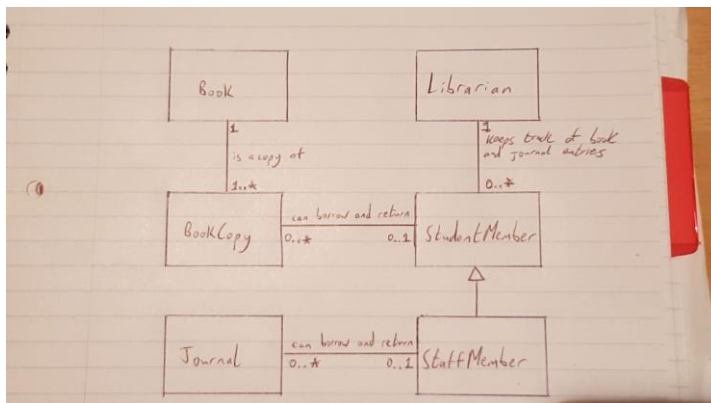 Book
Librarian
1
1
is a copy of
keeps track of book
and journal entries
1..*
0..*
BookCopy
can borrow and return
0..*
0..1
StudentMember
Journal
can borrow and return
0..*
0..1
StaffMember